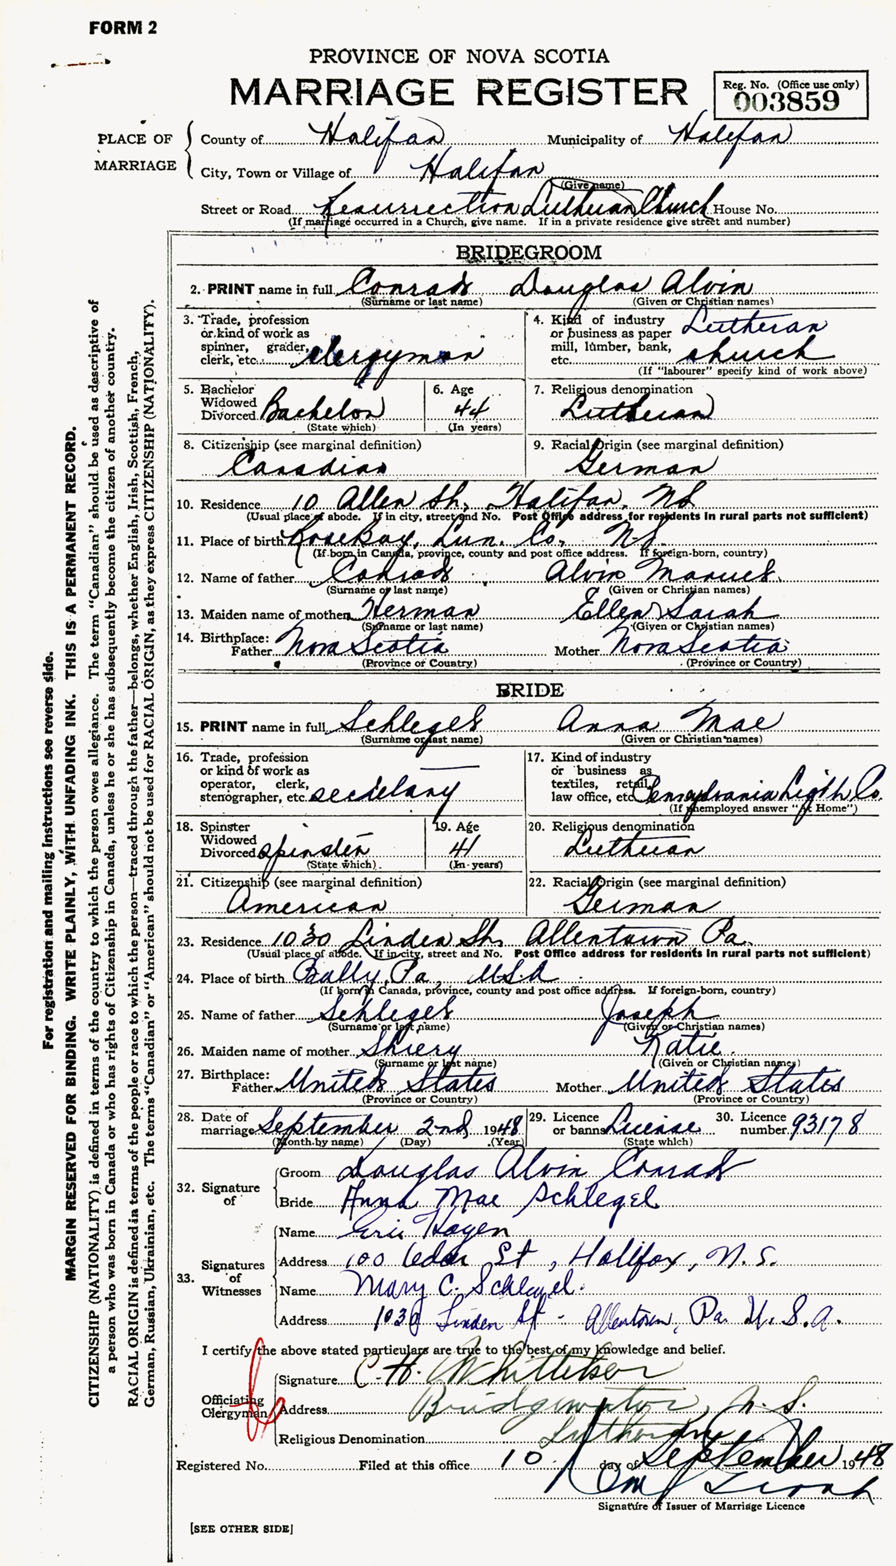 FORM 2
PROVINCE OF NOVA SCOTIA
MARRIAGE REGISTER
Reg. No. (Office use only)
003859
PLACE OF MARRIAGE
County of Halifax Municipality of Halifax
City, Town or Village of Halifax
(Give name)
Street or Road Resurrection Lutheran Church House No.
(If marriage occurred in a Church, give name. If in a private residence give street and number)
BRIDEGROOM
2. PRINT name in full Conrad Douglas Alvin
(Surname or last name) (Given or Christian names)
3. Trade, profession or kind of work as spinner, grader, clerk, etc. Clergyman
4. Kind of industry or business as paper mill, lumber, bank, etc. Lutheran church
(If "labourer" specify kind of work above)
5. Bachelor Widowed Divorced Bachelor
(State which)
6. Age 44
(In years)
7. Religious denomination
Lutheran
8. Citizenship (see marginal definition)
Canadian
9. Racial Origin (see marginal definition)
German
10. Residence 10 Allen St., Halifax, NS
(Usual place of abode. If in city, street and No. Post Office address for residents in rural parts not sufficient)
11. Place of birth Rose Bay, Lun. Co. N.S.
(If born in Canada, province, county and post office address. If foreign-born, country)
12. Name of father Conrad Alvin Manuel
(Surname or last name) (Given or Christian names)
13. Maiden name of mother Herman Ellen Sarah
(Surname or last name) (Given or Christian names)
14. Birthplace:
Father Nova Scotia Mother Nova Scotia
(Province or Country) (Province or Country)
BRIDE
15. PRINT name in full Schlegel Anna Mae
(Surname or last name) (Given or Christian names)
16. Trade, profession or kind of work as operator, clerk, stenographer, etc. secretary
17. Kind of industry or business as textiles, retail, law office, etc. Pennsylvania Ligth Co.
(If unemployed answer "At Home")
18. Spinster Widowed Divorced spinster
(State which)
19. Age 41
(In years)
20. Religious denomination
Lutheran
21. Citizenship (see marginal definition)
American
22. Racial Origin (see marginal definition)
German
23. Residence 1030 Linden St. Allentown Pa.
(Usual place of abode. If in city, street and No. Post Office address for residents in rural parts not sufficient)
24. Place of birth Bally, Pa, U.S.A
(If born in Canada, province, county and post office address. If foreign-born, country)
25. Name of father Schlegel Joseph
(Surname or last name) (Given or Christian names)
26. Maiden name of mother Shiery Katie
(Surname or last name) (Given or Christian names)
27. Birthplace:
Father United States Mother United States
(Province or Country) (Province or Country)
28. Date of marriage September 2nd 1948
(Month by name) (Day) (Year)
29. Licence or banns License
(State which)
30. Licence number 93178
32. Signature of
Groom Douglas Alvin Conrad
Bride Anna Mae Schlegel
33. Signatures of Witnesses
Name Eric Hagen
Address 100 Cedar St, Halifax, N.S.
Name Mary C. Schlegel.
Address 1030 Linden St - Allentown, Pa. U.S.A.
I certify the above stated particulars are true to the best of my knowledge and belief.
Officiating Clergyman
Signature C. H. Whitteker
Address Bridgewater, N.S.
Religious Denomination Lutheran
Registered No. Filed at this office 10 day of September 1948
Signature of Issuer of Marriage Licence
[SEE OTHER SIDE]
For registration and mailing instructions see reverse side.
MARGIN RESERVED FOR BINDING. WRITE PLAINLY, WITH UNFADING INK. THIS IS A PERMANENT RECORD.
CITIZENSHIP (NATIONALITY) is defined in terms of the country to which the person owes allegiance. The term "Canadian" should be used as descriptive of
a person who was born in Canada or who has rights of Citizenship in Canada, unless he or she has subsequently become the citizen of another country.
RACIAL ORIGIN is defined in terms of the people or race to which the person—traced through the father—belongs, whether English, Irish, Scottish, French,
German, Russian, Ukrainian, etc. The terms "Canadian" or "American" should not be used for RACIAL ORIGIN, as they express CITIZENSHIP (NATIONALITY).